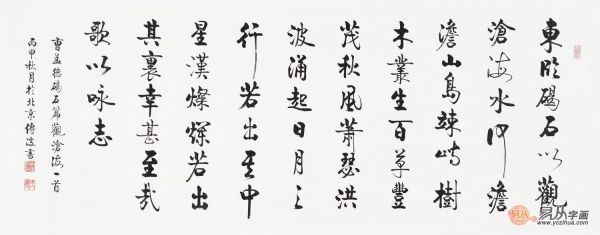 東臨碣石以觀
滄海水何澹
澹山島竦峙樹
木叢生百草豐
茂秋風蕭瑟洪
波涌起日月之
行若出其中
星漢燦爛若出
其裏幸甚至哉
歌以咏志
曹孟德碣石篇觀滄海一首
丙申秋月於北京 書
易从字画
www.yczihua.com